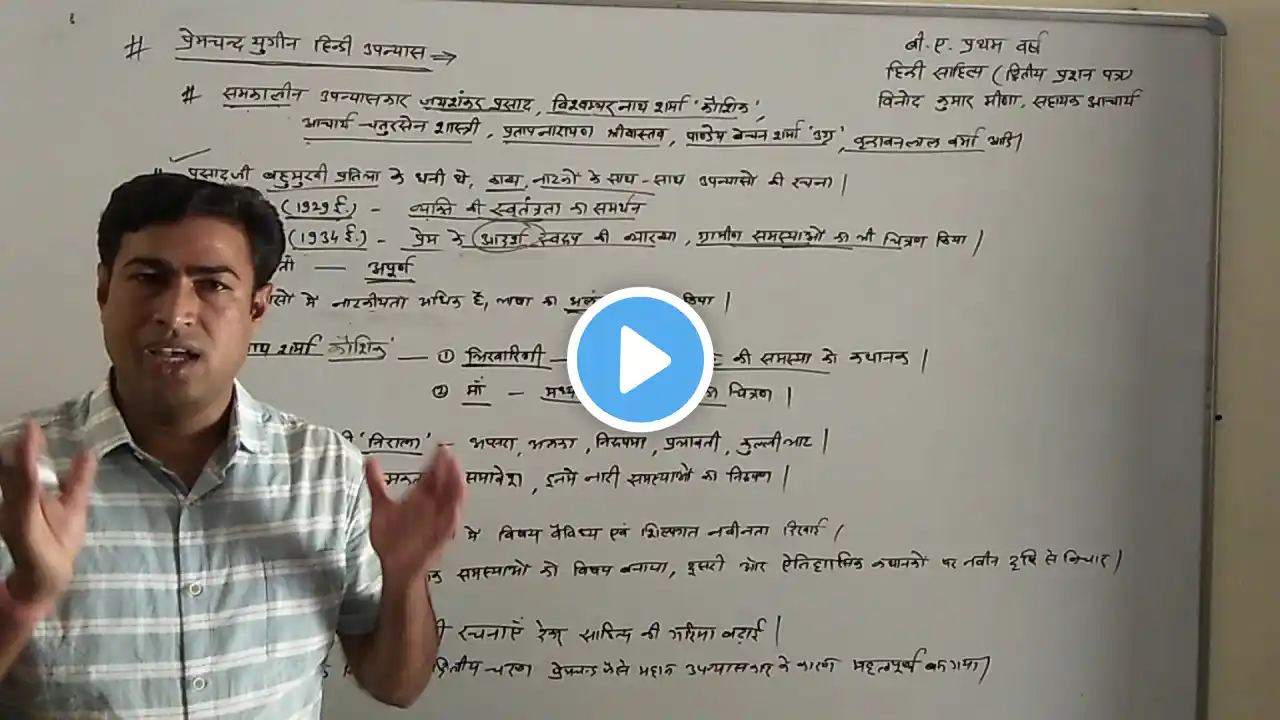 # प्रेमचन्द युगीन हिन्दी उपन्यास →
बी.ए. प्रथम वर्ष
हिन्दी साहित्य (द्वितीय प्रशन पत्र)
विनोद कुमार मीणा, सहायक आचार्य
# समकालीन उपन्यासकार जयशंकर प्रसाद, विश्वम्भर नाथ शर्मा 'कौशिक',
आचार्य चतुरसेन शास्त्री, प्रतापनारायण श्रीवास्तव, पाण्डेय बेचन शर्मा 'उग्र', वृन्दावनलाल वर्मा आदि|
प्रसादजी बहुमुखी प्रतिभा के धनी थे, काव्य, नाटकों के साथ-साथ उपन्यासों की रचना|
(1929 ई.) - व्यक्ति की स्वतंत्रता का समर्थन
(1934 ई.) - प्रेम के आदर्श स्वरूप की व्याख्या, ग्रामीण समस्याओं का भी चित्रण किया|
ती — अपूर्ण
सों में नाटकीयता अधिक है, भाषा का किया|
नाथ शर्मा 'कौशिक' — ① भिखारिणी — की समस्या को कथानक|
② माँ — मध्य चित्रण|
'निराला' - अप्सरा, अलका, निरुपमा, प्रभावती, कुल्लीभाट|
समावेश, इनमें नारी समस्याओं का निरूपण|
में विषय वैविध्य एवं शिल्पगत नवीनता दिखाई|
क समस्याओं को विषय बनाया, दूसरी ओर ऐतिहासिक कथानकों पर नवीन दृष्टि से विचार|
रचनाएँ देकर साहित्य की गरिमा बढ़ाई|
द्वितीय चरण प्रेमचन्द जैसे महान उपन्यासकार के कारण महत्वपूर्ण बन गया|